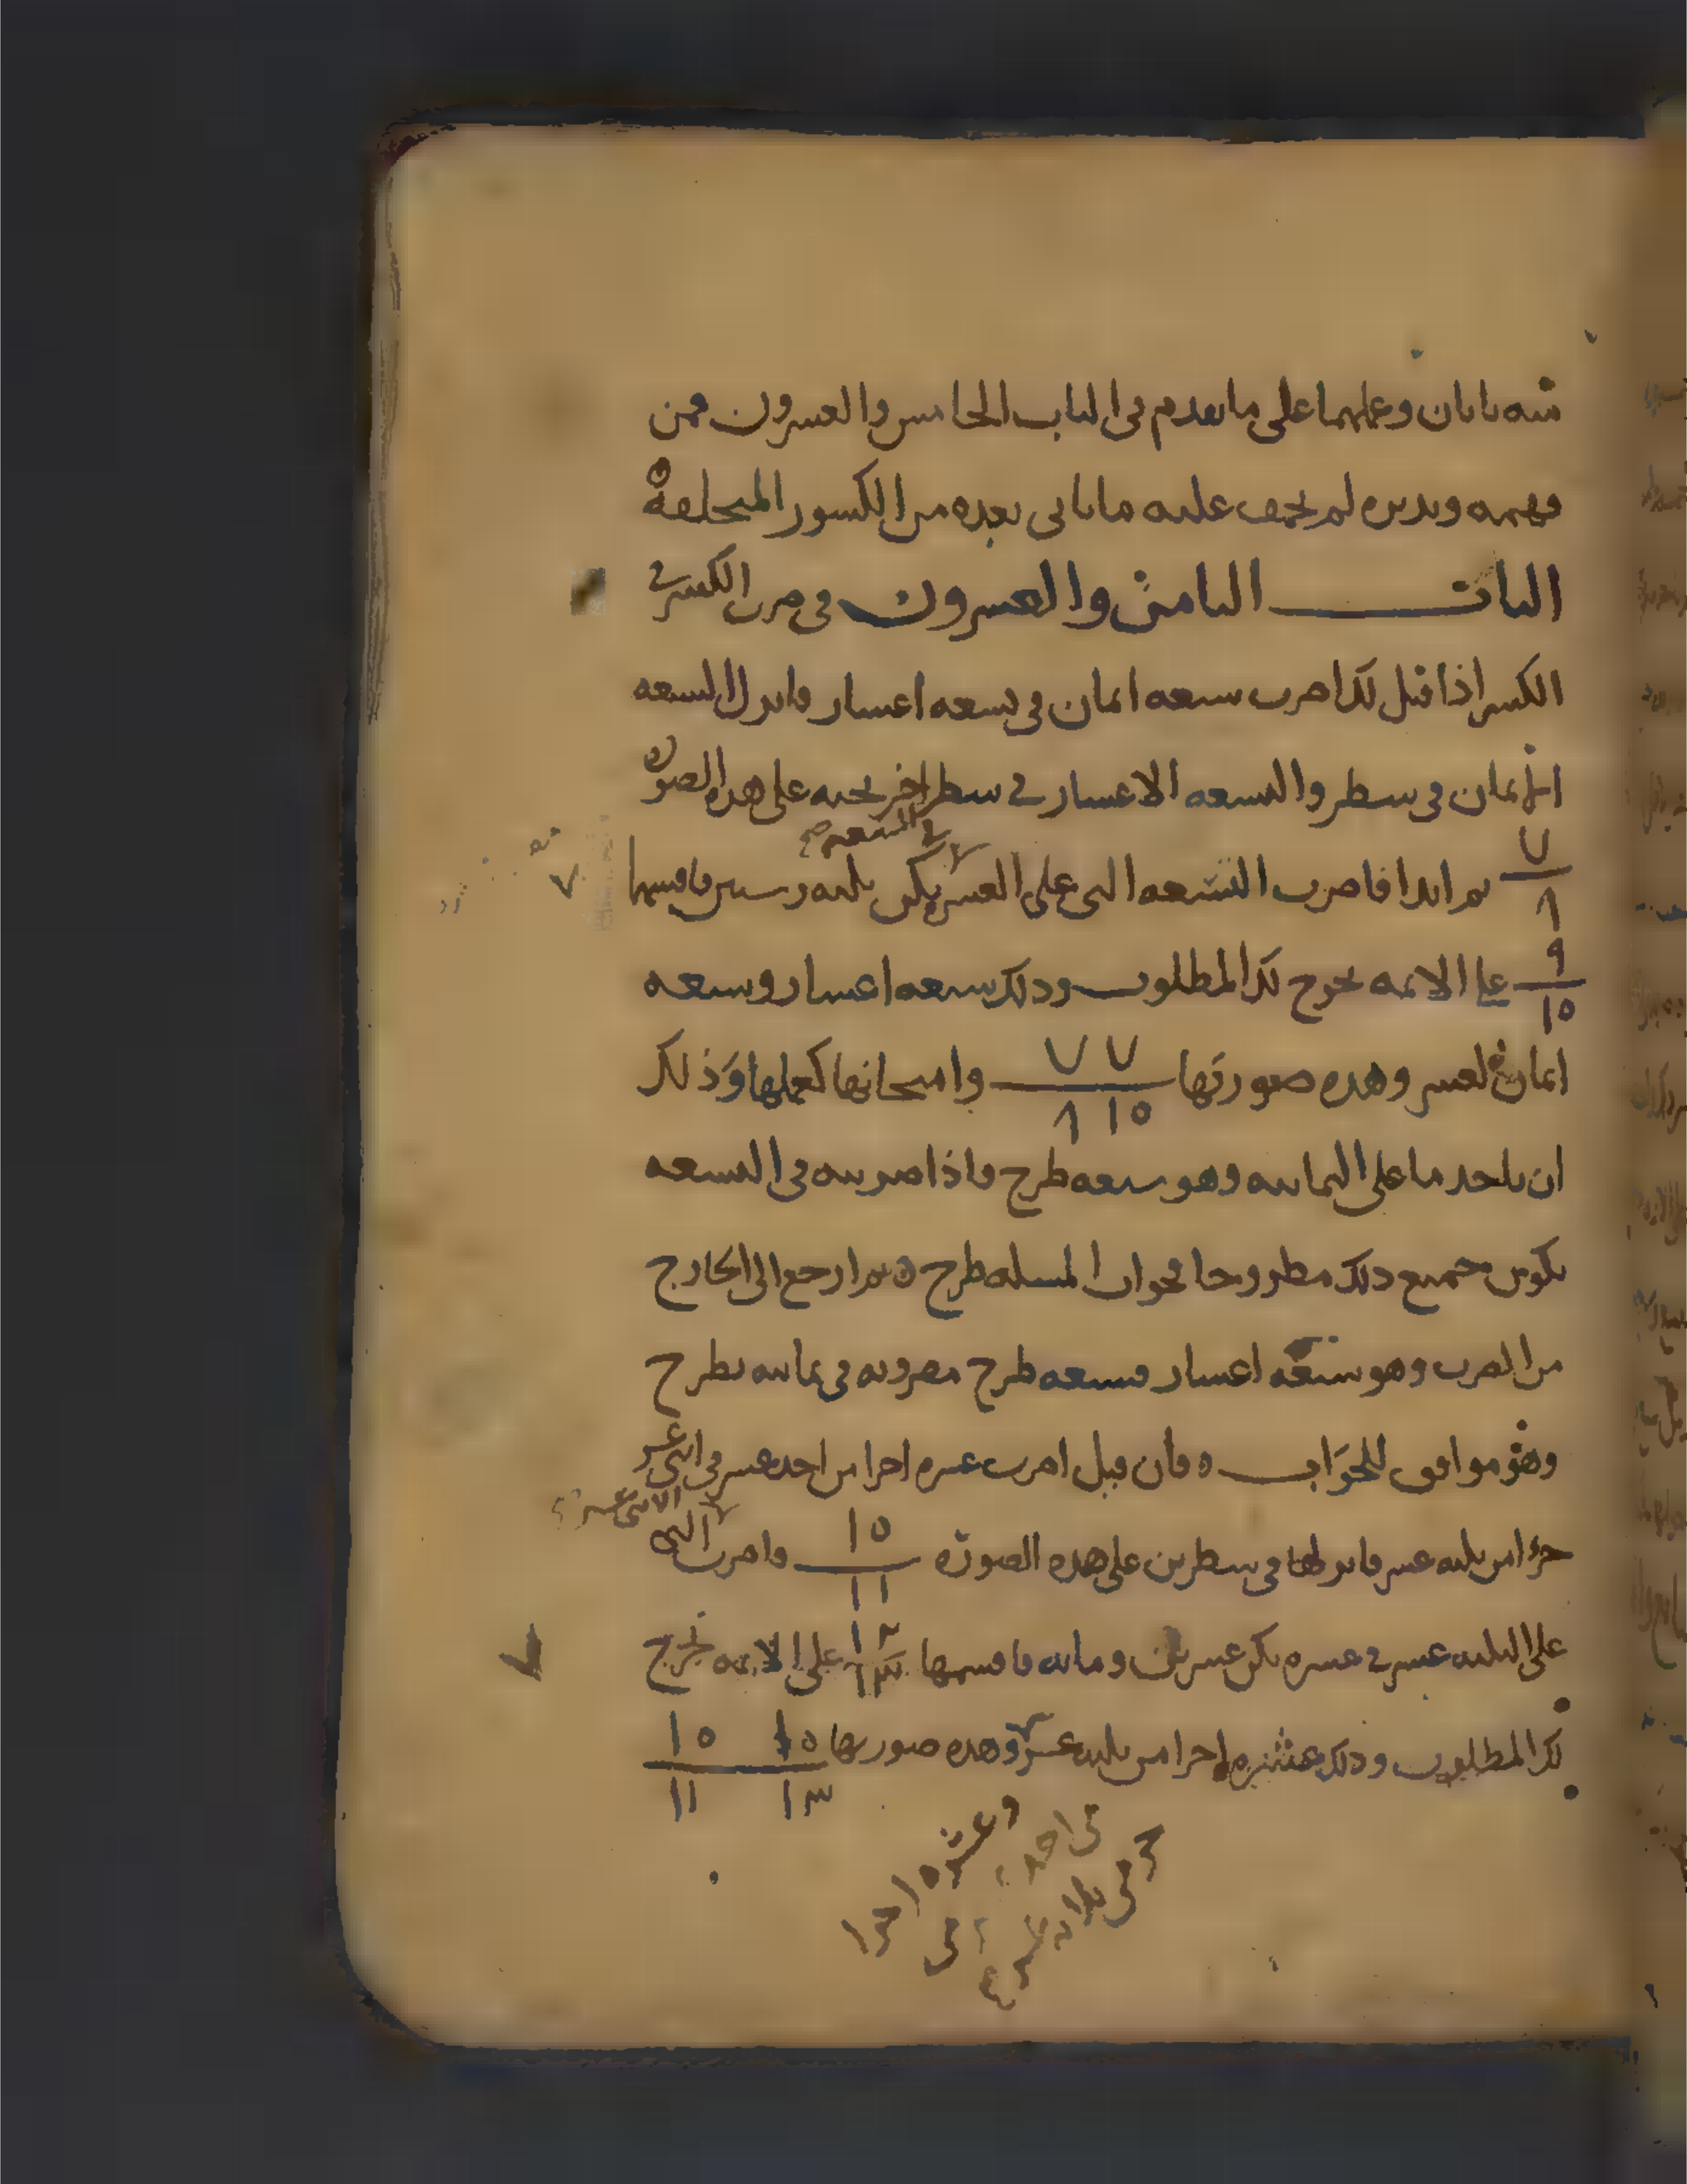 منه بابان وعملهما على ما تقدم في الباب الخامس والعشرون فمن
فهمه وتدبره لم يخف عليه ما ياتي بعده من الكسور المختلفة
الباب الثامن والعشرون في ضرب الكسر في
الكسر اذا قيل لك اضرب سبعه اثمان في تسعه اعشار فانزل السبعه
اثمان في سطر والتسعه الاعشار في سطر اخر تحته على هذه الصوره
٧
٨
ثم ابدا فاضرب التسعه التي على العشره في السبعه صح يكن ثلثه وستين فاقسمها
٩
١٥
على الايمه يخرج لك المطلوب وذلك سبعه اعشار وسبعه
اثمان العشر وهذه صورتها ٧ ٧ وامتحانها كعملها وذلك
٨ ١٥
ان تاخذ ما على الثمانيه وهو سبعه طرح فاذا ضربته في التسعه
يكون جميع ذلك مطروحا فجواب المسله طرح ٥ ثم ارجع الى الخارج
من الضرب وهو سبعه اعشار فسبعه طرح مضروبه في ثمانيه تطرح
وهو موافق للجواب ٥ فان قيل اضرب عشره اجزا من احد عشر في اثنى عشر
جزءا من ثلثه عشر فانزلها في سطرين على هذه الصورة ١٥ فاضرب الاثنى عشر التي
١١
على الثلثه عشر في عشره يكن عشرين ومايه فاقسمها ١٢ على الايمه يخرج
١٣
لك المطلوب وذلك عشره اجزا من ثلثه عشر وهذه صورتها ١٥ ١٥
١٣ ١١
وعشره اجزا
من احد
جز من ثلاثه عشر